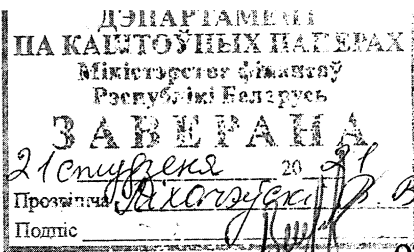 ДЭПАРТАМЕНТ
ПА КАШТОЎНЫХ ПАПЕРАХ
Міністэрства фінансаў
Рэспублікі Беларусь
ЗАВЕРАНА
21 студзеня 20 21
Прозвішча
Подпіс